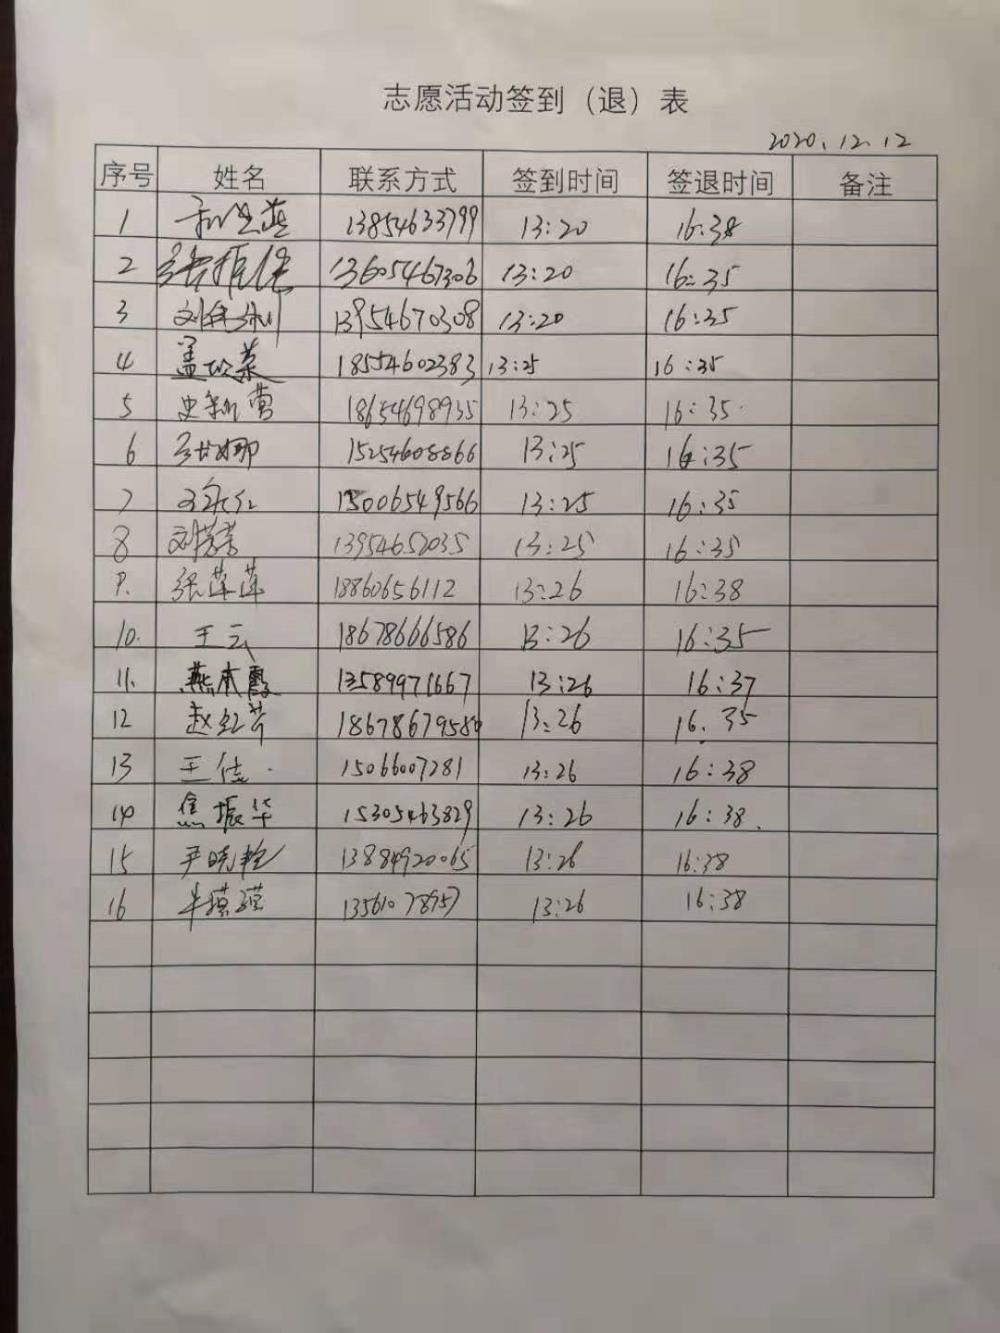 志愿活动签到（退）表
2020.12.12
序号 姓名 联系方式 签到时间 签退时间 备注
1 13854633799 13:20 16:38
2 张振健 13605467306 13:20 16:35
3 13954670308 13:20 16:35
4 盖 菜 18554602383 13:25 16:35
5 史 莺 18654698935 13:25 16:35
6 娜 15254608866 13:25 16:35
7 15006549566 13:25 16:35
8 刘芳芳 13954652035 13:25 16:35
9. 张萍萍 18860656112 13:26 16:38
10. 王云 18678666586 13:26 16:35
11. 燕本霞 13589971667 13:26 16:37
12 赵红芹 1867867958 13:26 16:35
13 王佳 15066007281 13:26 16:38
14 焦振华 15305463829 13:26 16:38.
15 尹晓艳 13884920065 13:26 16:38
16 1356107 13:26 16:38